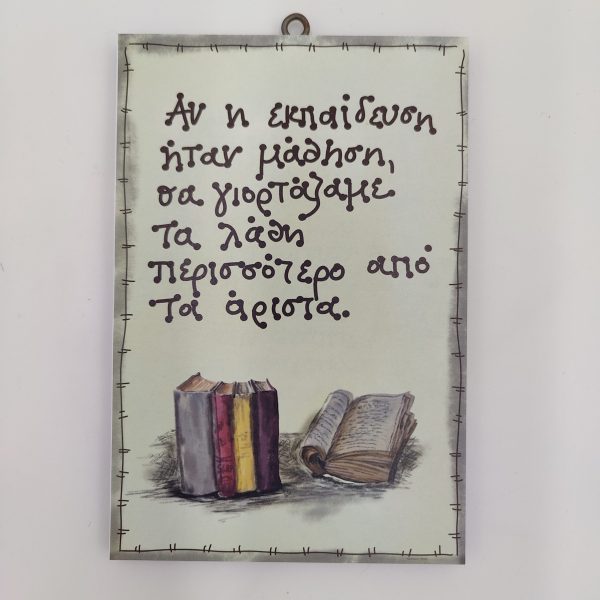 Αν η εκπαίδευση
ήταν μάθηση,
σα γιορτάζαμε
τα λάθη
περισσότερο από
τα άριστα.